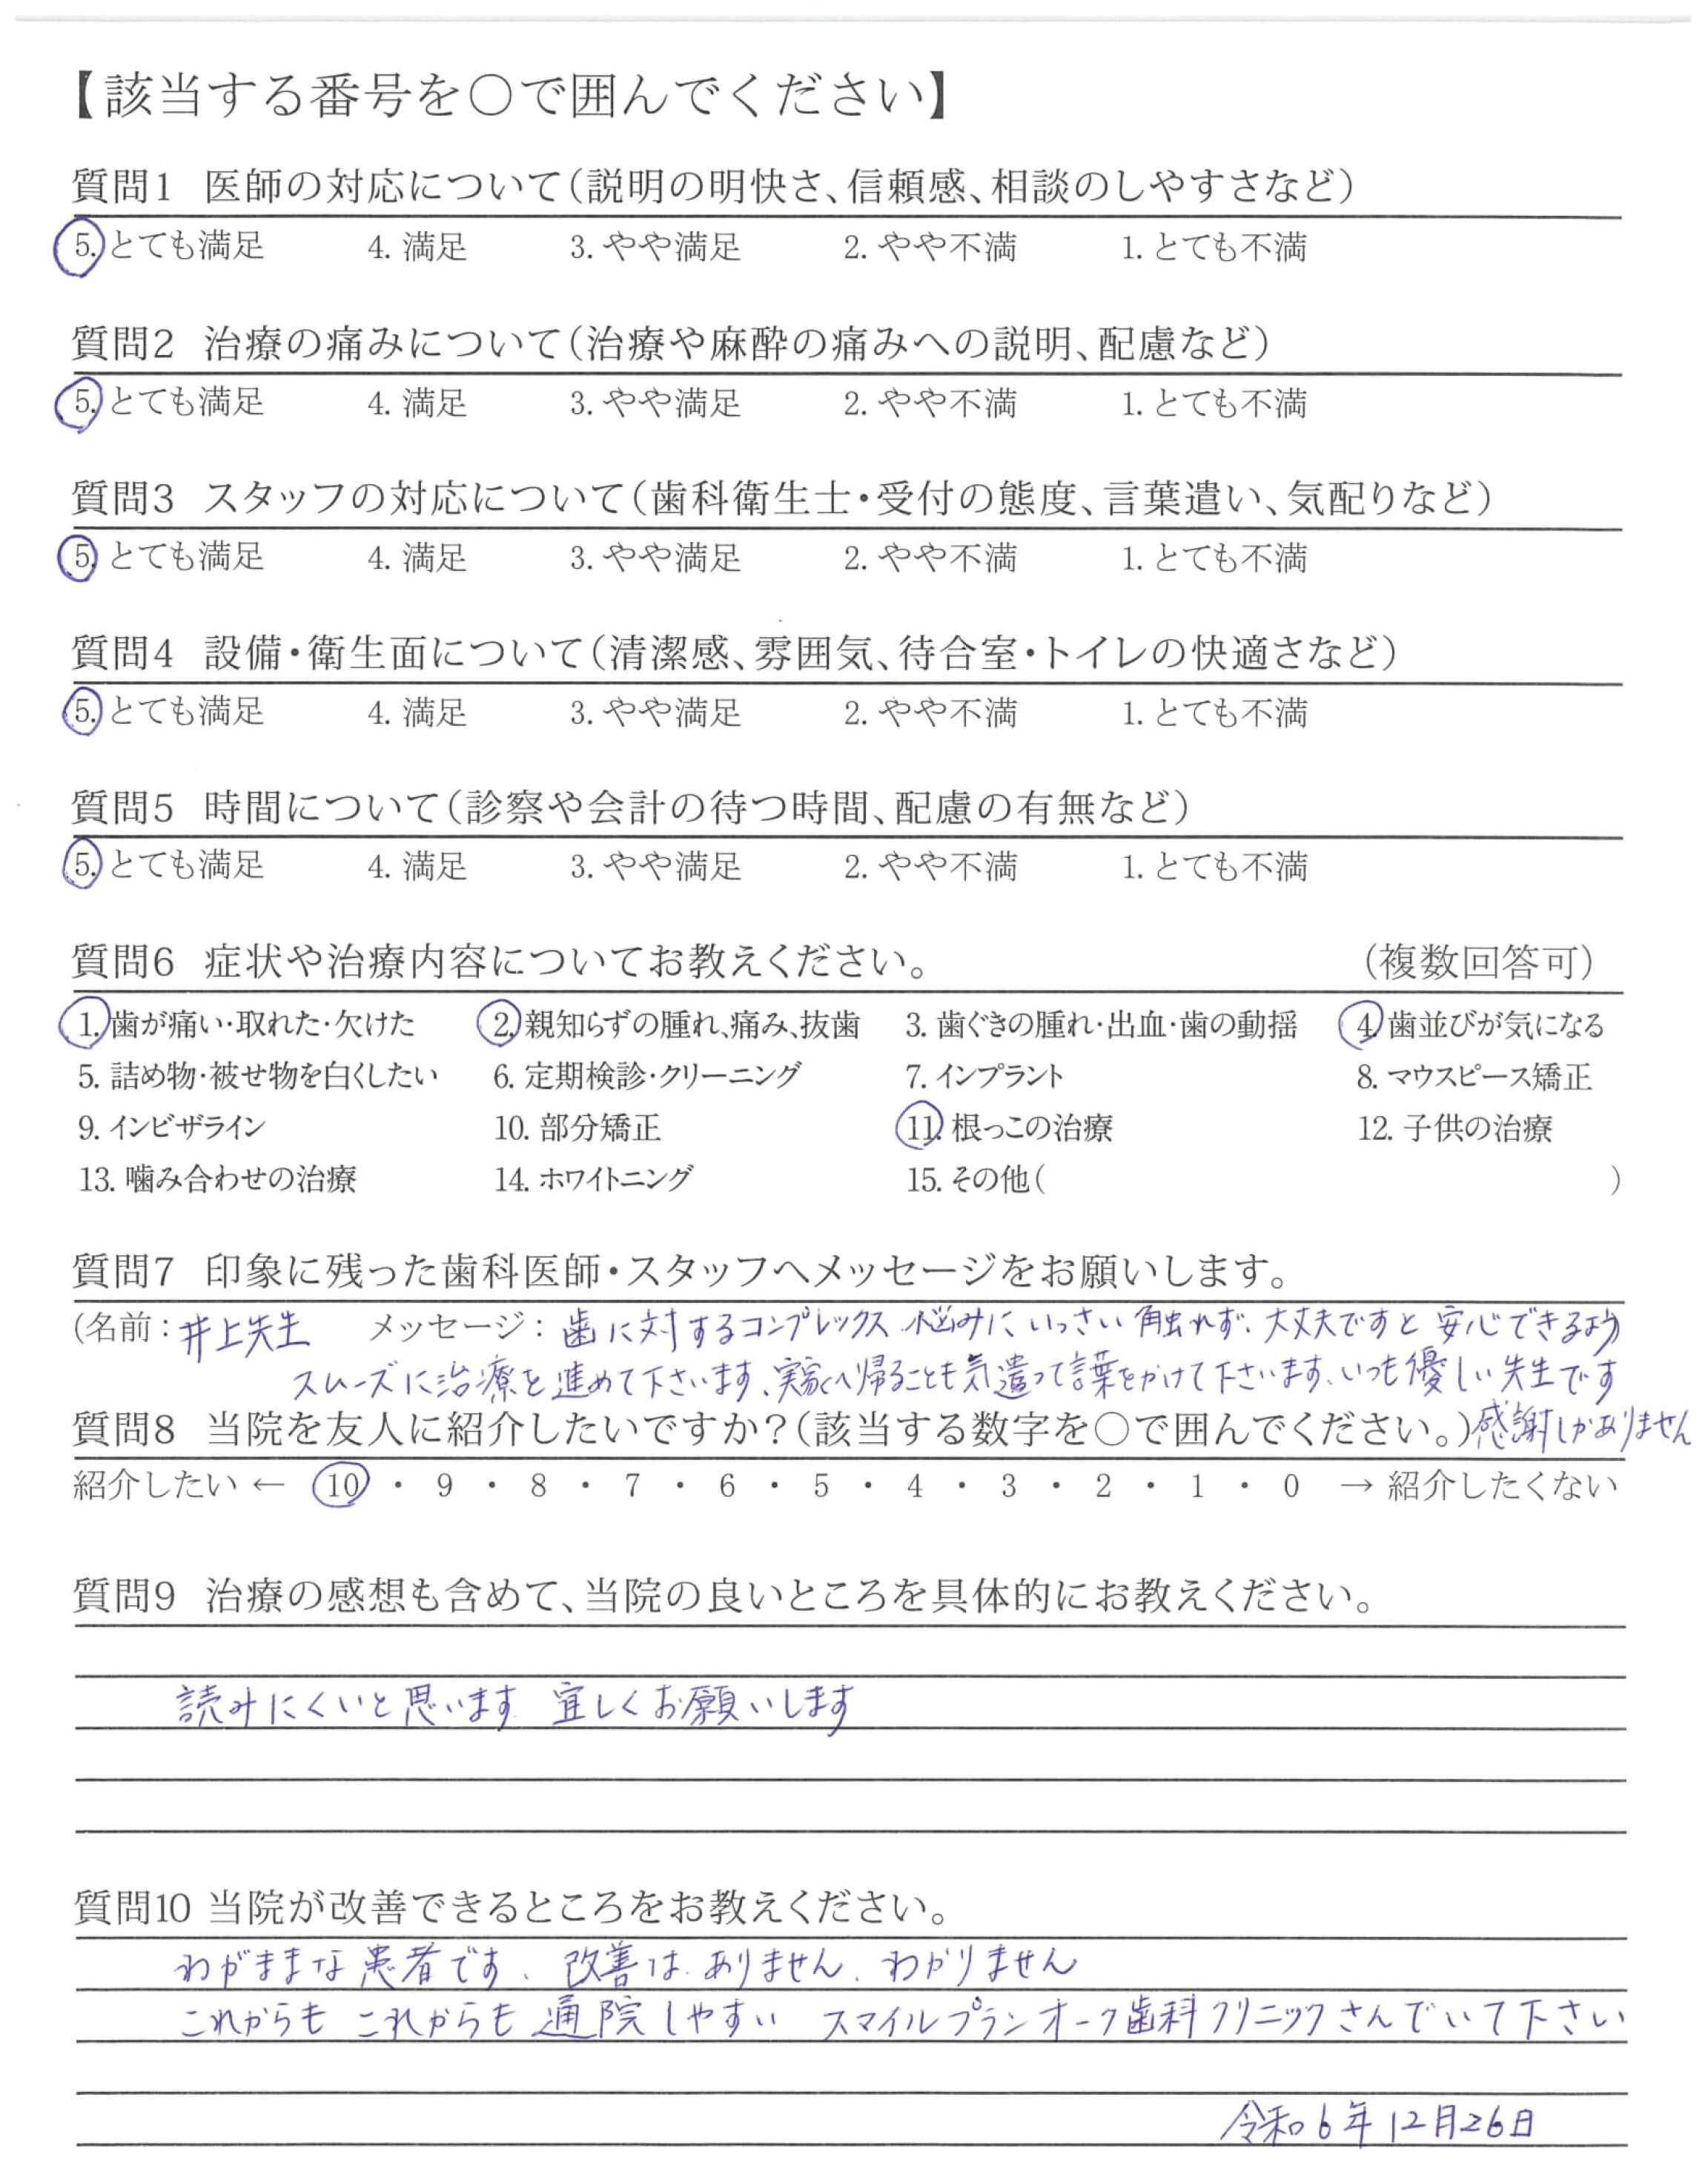 【該当する番号を○で囲んでください】
質問1 医師の対応について(説明の明快さ、信頼感、相談のしやすさなど)
5. とても満足 4. 満足 3. やや満足 2. やや不満 1. とても不満
質問2 治療の痛みについて(治療や麻酔の痛みへの説明、配慮など)
5. とても満足 4. 満足 3. やや満足 2. やや不満 1. とても不満
質問3 スタッフの対応について(歯科衛生士・受付の態度、言葉遣い、気配りなど)
5. とても満足 4. 満足 3. やや満足 2. やや不満 1. とても不満
質問4 設備・衛生面について(清潔感、雰囲気、待合室・トイレの快適さなど)
5. とても満足 4. 満足 3. やや満足 2. やや不満 1. とても不満
質問5 時間について(診察や会計の待つ時間、配慮の有無など)
5. とても満足 4. 満足 3. やや満足 2. やや不満 1. とても不満
質問6 症状や治療内容についてお教えください。 (複数回答可)
1. 歯が痛い・取れた・欠けた 2. 親知らずの腫れ、痛み、抜歯 3. 歯ぐきの腫れ・出血・歯の動揺 4. 歯並びが気になる
5. 詰め物・被せ物を白くしたい 6. 定期検診・クリーニング 7. インプラント 8. マウスピース矯正
9. インビザライン 10. 部分矯正 11. 根っこの治療 12. 子供の治療
13. 噛み合わせの治療 14. ホワイトニング 15. その他( )
質問7 印象に残った歯科医師・スタッフへメッセージをお願いします。
(名前:井上先生 メッセージ:歯に対するコンプレックス 悩みに いっさい 触れず、大丈夫ですと 安心できるよう)
スムーズに治療を進めて下さいます、実家へ帰ることも気遣って言葉をかけて下さいます、いつも優しい先生です
質問8 当院を友人に紹介したいですか?(該当する数字を○で囲んでください。)感謝しかありません
紹介したい ← 10 ・ 9 ・ 8 ・ 7 ・ 6 ・ 5 ・ 4 ・ 3 ・ 2 ・ 1 ・ 0 → 紹介したくない
質問9 治療の感想も含めて、当院の良いところを具体的にお教えください。
読みにくいと思います 宜しくお願いします
質問10 当院が改善できるところをお教えください。
わがままな患者です、改善は ありません、わかりません
これからも これからも 通院しやすい スマイルプランオーク歯科クリニックさんでいて下さい
令和6年12月26日